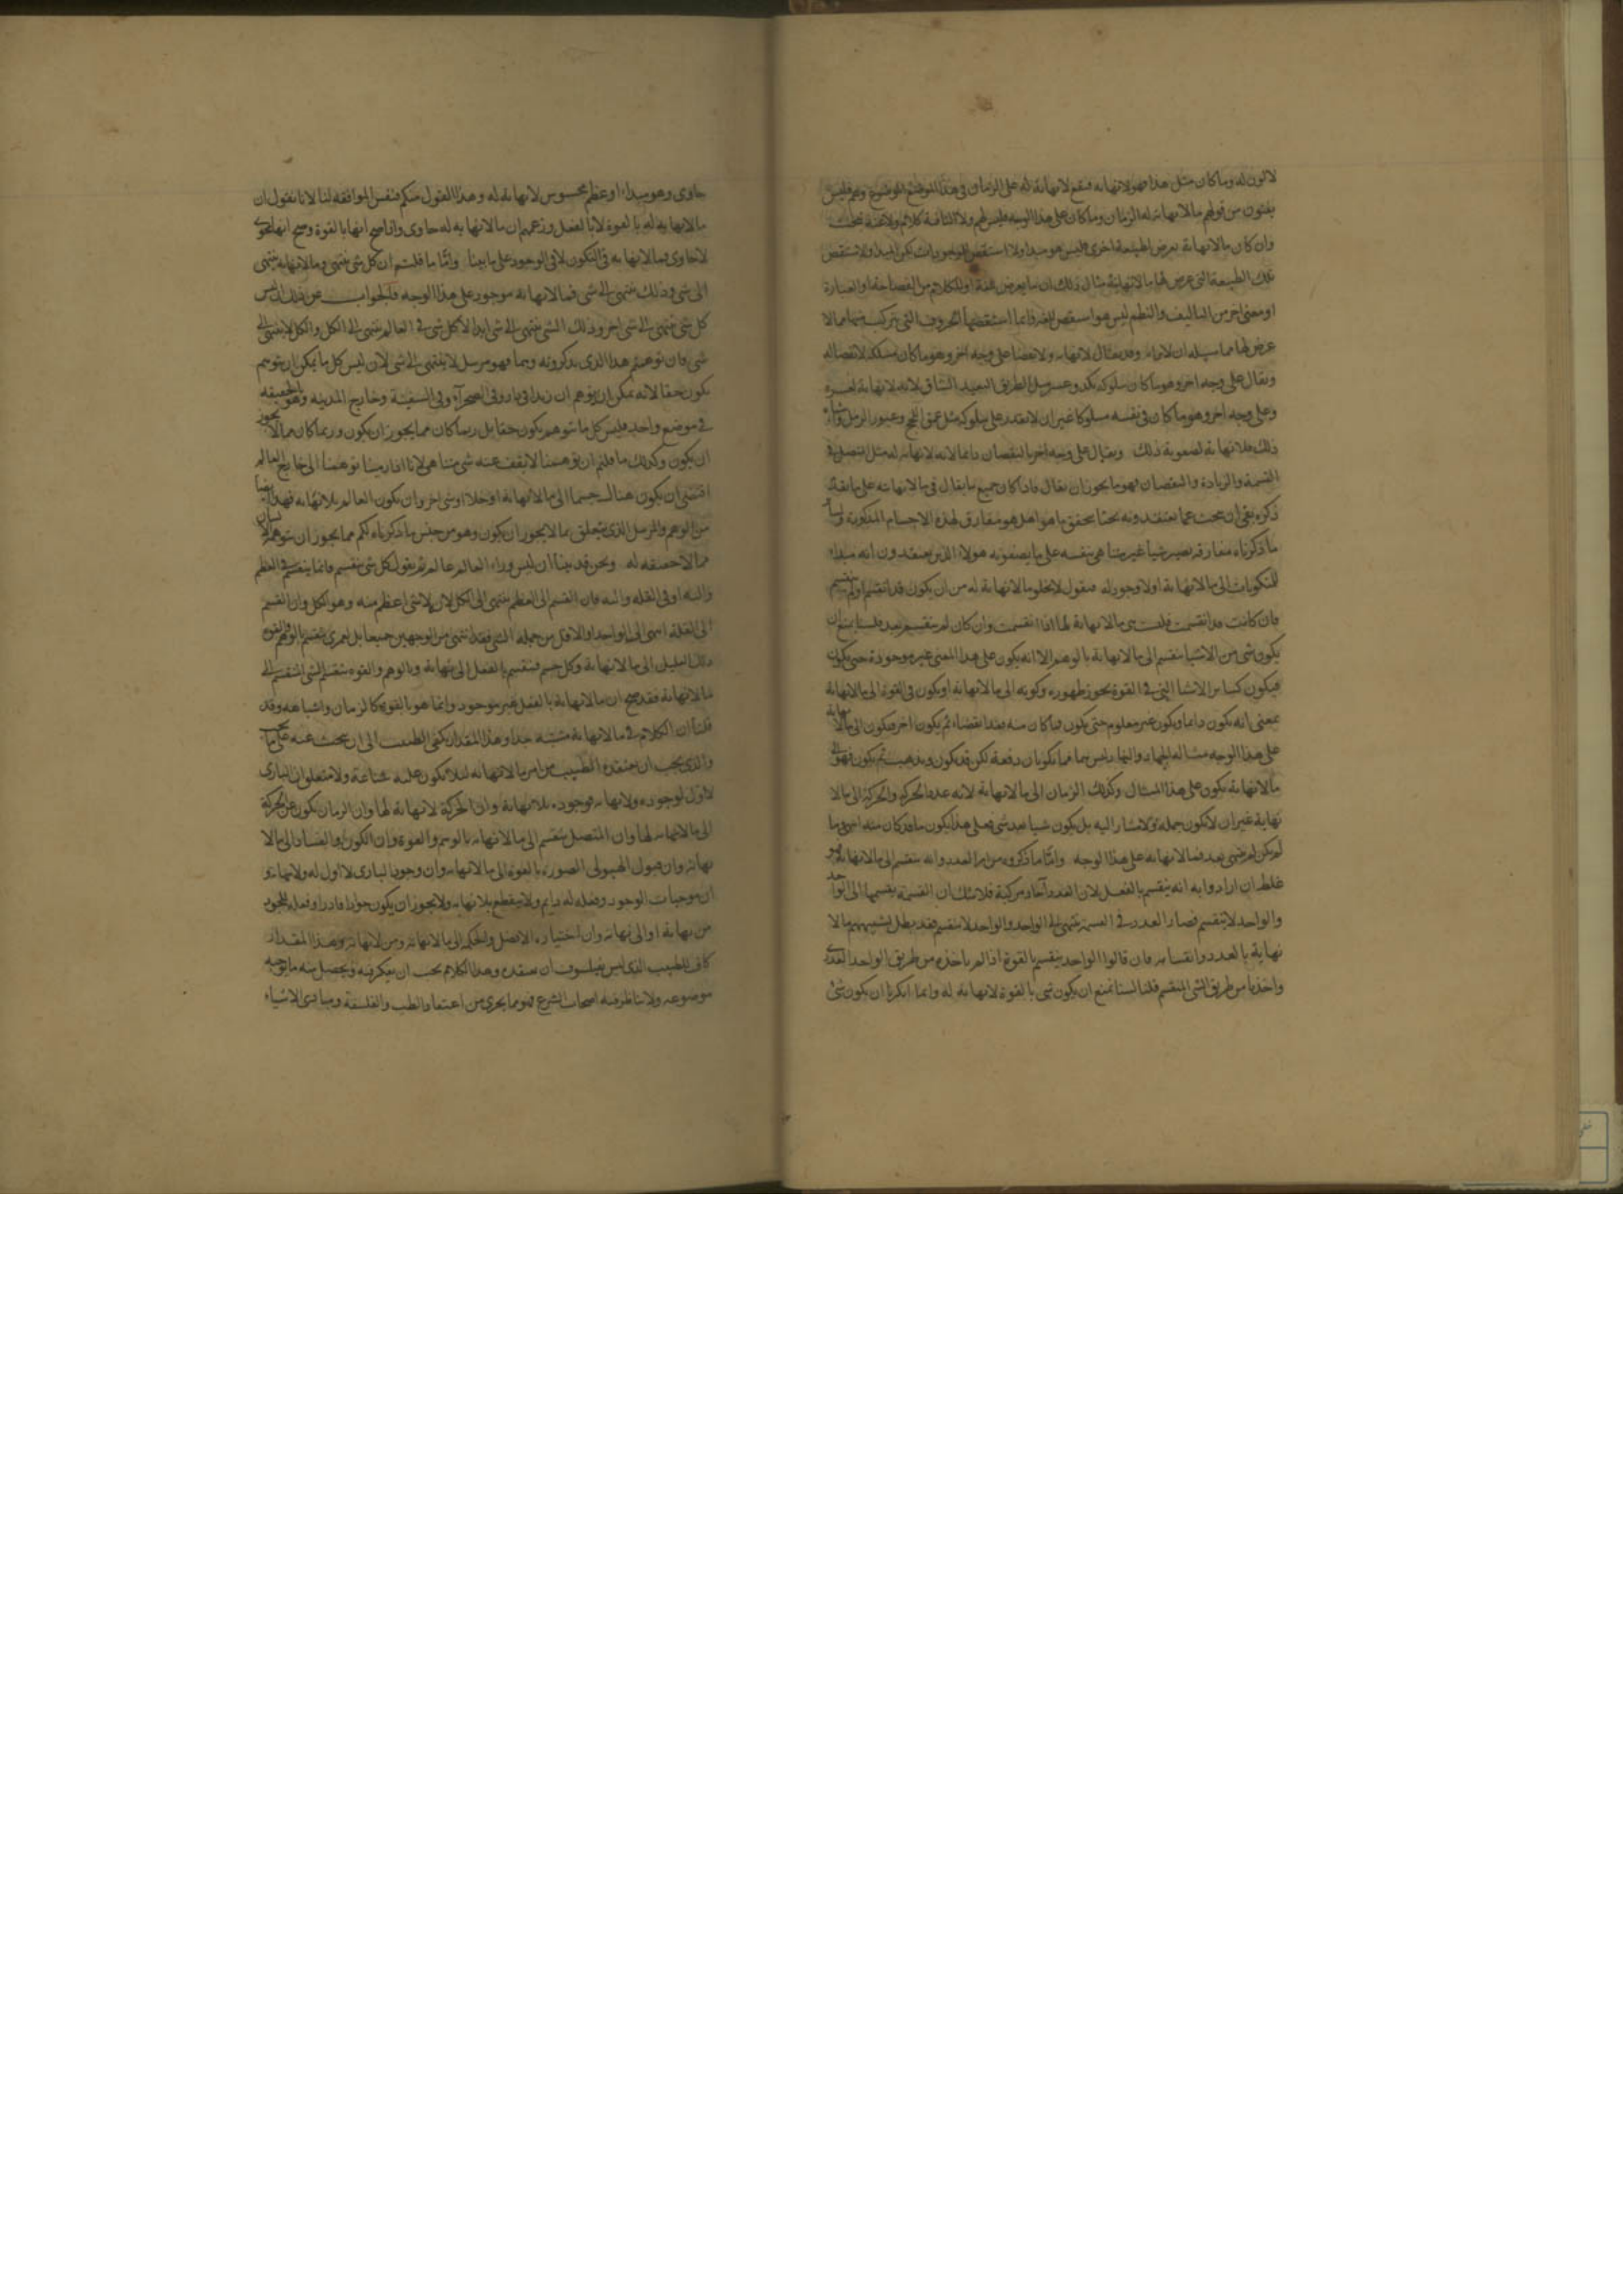 لا لون له وما كان مثل هذا فهو لا نهاية فيقع لا نهاية له على الزمان في هذا الموضع
من قولهم ما لا نهاية له الزمان وما كان على هذا الوجه فليس لهم ولا لنا فيه كلام
وان كان ما لا نهاية يعرض لطبيعة اخرى فليس هو مبدا ولا استقص للموجودات لكن المبدا والاستقص
تلك الطبيعة التي عرض لها ما لا نهاية مثال ذلك ان ما يعرض للغة او للكلام من الفصاحة او العبارة
او معنى اخر من التاليف والنظم ليس هو استقص للغة وانما استقصها الحروف التي تتركب منها
عرض لها وقد يقال لا نهاية ولا انقضا على وجه اخر وهو ما كان مسلكه لا انقضا له
ويقال على وجه اخر وهو ما كان سلوكه بكد وعسر مثل الطريق البعيد الشاق بلا نهاية
وعلى وجه اخر وهو ما كان في نفسه مسلوكا غير ان لا يقدر على سلوكه مثل عمق اللج وعبور الرمل
ذلك فلا نهاية لصعوبة ذلك ويقال على وجه اخر بالنقصان
القسمة والزيادة والنقصان فهو ما يجوز ان يقال فاذا كان جميع ما يقال في ما لا نهاية على ما تقدم
ذكره بقي ان نبحث عما يعتقدونه بحثا يحقق ما هو وهل هو مفارق لهذه الاجسام المذكورة
ما ذكرناه مفارقه يصير شيا غير متناهي بنفسه على ما يصفونه هولاء الذين يعتقدون انه مبداء
للتكوينات الى ما لا نهاية اولا وجود له فنقول لا يخلو ما لا نهاية له من ان يكون قد انقسم او لم ينقسم
فان كانت قد انقسمت فليست ما لا نهاية لها اذا انقسمت وان كان لم ينقسم بعد فلسنا نمنع ان
يكون شي من الاشيا ينقسم الى ما لا نهاية بالوهم الا انه يكون على هذا المعنى غير موجودة حتى يكون
فيكون كسائر الاشيا التي في القوة يجوز ظهوره وكونه الى ما لا نهاية او يكون في القوة الى ما لا نهاية
بمعنى انه يكون دايما ويكون غير معلوم حتى يكون فما كان منه فقد انقضاء ثم يكون اخر فيكون الى ما لا نهاية
على هذا الوجه مثاله الجهاد والنهار ليس مما يكونان دفعة لكن قد يكون ويذهب ثم يكون فهو الى
ما لا نهاية يكون على هذا المثال وكذلك الزمان الى ما لا نهاية لانه عدد الحركة والحركة الى ما لا
نهاية غير ان لا تكون جملة ولا يشار اليه بل يكون شيا بعد شي فعلى هذا يكون ما قد كان منه انقضى وما
لم يكن لم يقضى بعد فما لا نهاية على هذا الوجه واما ما ذكروه من امر العدد وانه ينقسم الى ما لا نهاية فهو
غلط ان ارادوا به انه ينقسم بالفعل لان العدد آحاد مركبة فلا شك ان القسمة يقسمها الى الواحد
والواحد لا ينقسم فصار العدد في القسمة ينتهي الى الواحد والواحد لا ينقسم فقد بطل تشبيههم ما لا
نهاية بالعدد وانقسامه فان قالوا الواحد ينقسم بالقوة اذا لم ناخذه من طريق الواحد العددى
واخذناه من طريق الشي المنقسم قلنا لسنا نمنع ان يكون شي بالقوة لا نهاية له وانما انكرنا ان يكون شي
حاوى وهو مبداء او عظم محسوس لا نهاية له وهذا القول منكم فنفس الموافقة لنا لانا نقول ان
ما لا نهاية له بالقوة لا بالفعل وزعمهم ان ما لا نهاية له حاوى واذا صح انها بالقوة وصح انها تحوى
لا حاوى فما لا نهاية في التكون لا في الوجود على ما بينا واما ما قلتم ان كل شي ينتهي وما لا نهاية ينتهي
الى شي وذلك ينتهي الى شي فما لا نهاية موجود على هذا الوجه فالجواب عن ذلك ليس
كل شي ينتهي الى شي اخر وذلك الشي ينتهي الى شي ابدا لان كل شي في العالم ينتهي الى الكل والكل لا ينتهي الى
شي فان توهمتم هذا الذي تذكرونه وهما فهو مرسل لا ينتهي الى شي لان ليس كل ما يمكن ان يتوهم
يكون حقا لانه يمكن ان يتوهم ان زيدا في داره وفي الصحرآء وفي السفينة وخارج المدينة وهو بالحقيقة
في موضع واحد فليس كل ما يتوهم يكون حقا بل ربما كان مما يجوز ان يكون وربما كان مما لا يجوز
ان يكون وكذلك ما قلتم ان توهمنا لا يقف عند شي متناهي لانا اذا توهمنا الى خارج العالم
اقتضى ان يكون هناك جسما الى ما لا نهاية او خلا او شي اخر وان يكون العالم بلا نهاية فهذا ايضا
من الوهم المرسل الذي يتعلق بما لا يجوز ان يكون وهو من جنس ما ذكرناه لكم مما يجوز ان يتوهم
مما لا حقيقة له ونحن قد بينا ان ليس وراء العالم عالم ثم نقول كل شي ينقسم فانما ينقسم في العظم
او في القلة فان القسم الى العظم ينتهي الى الكل لان لا شي اعظم منه وهو الكل وان القسم
الى القلة انتهى الى الواحد او الاقل من جملة الشي فقد انتهى من الوجهين جميعا بل لعمري ينقسم بالوهم والقوة
ذلك القليل الى ما لا نهاية وكل جسم فينقسم بالفعل الى نهاية وبالوهم والقوة ينقسم الى
ما لا نهاية فقد صح ان ما لا نهاية بالفعل غير موجود وانما هو بالقوة كالزمان واشباهه وقد
قلنا ان الكلام في ما لا نهاية مشتبه جدا وهذا المقدار يكفي الطبيب الى ان يبحث عنه
والذي يجب ان يعتقده الطبيب من امر ما لا نهاية لئلا يكون عليه شناعة ان البارى
لا اول لوجوده ولا نهاية فوجوده بلا نهاية وان الحركة لا نهاية لها وان الزمان يكون عن الحركة
الى ما لا نهاية لها وان المتصل ينقسم الى ما لا نهاية بالوهم والقوة وان الكون والفساد الى ما لا
نهاية وان قبول الهيولى الصورة بالقوة الى ما لا نهاية وان وجود البارى لا اول له ولا نهاية و
ان موجبات الوجود وفعله له دايم ولا ينقطع بلا نهاية ولا يجوز ان يكون جوادا قادرا وفعله للجود
من نهاية او الى نهاية وان اختياره الافضل والحكم الى ما لا نهاية ومن لا نهاية وهذا المقدار
كاف للطبيب الذي ليس بفيلسوف ان يعتقده وهذا الكلام يجب ان يفكر فيه ويحصل منه ما يوجبه
موضوعه ولا يناظر فيه اصحاب الشرع فهو مما يجري من اعتقاد الطب والفلسفة ومبادى الاشياء